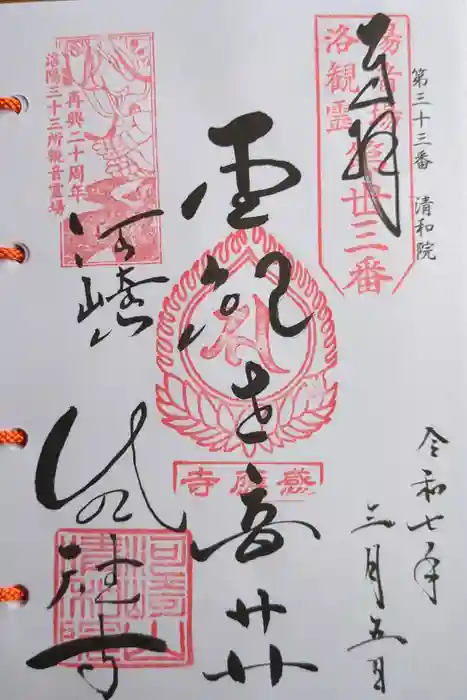 第三十三番　清和院
奉拝
洛陽観音霊場
第丗三番
令和七年
三月五日
聖観世音艹艹
感應寺
再興二十周年
洛陽三十三所観音霊場
河崎